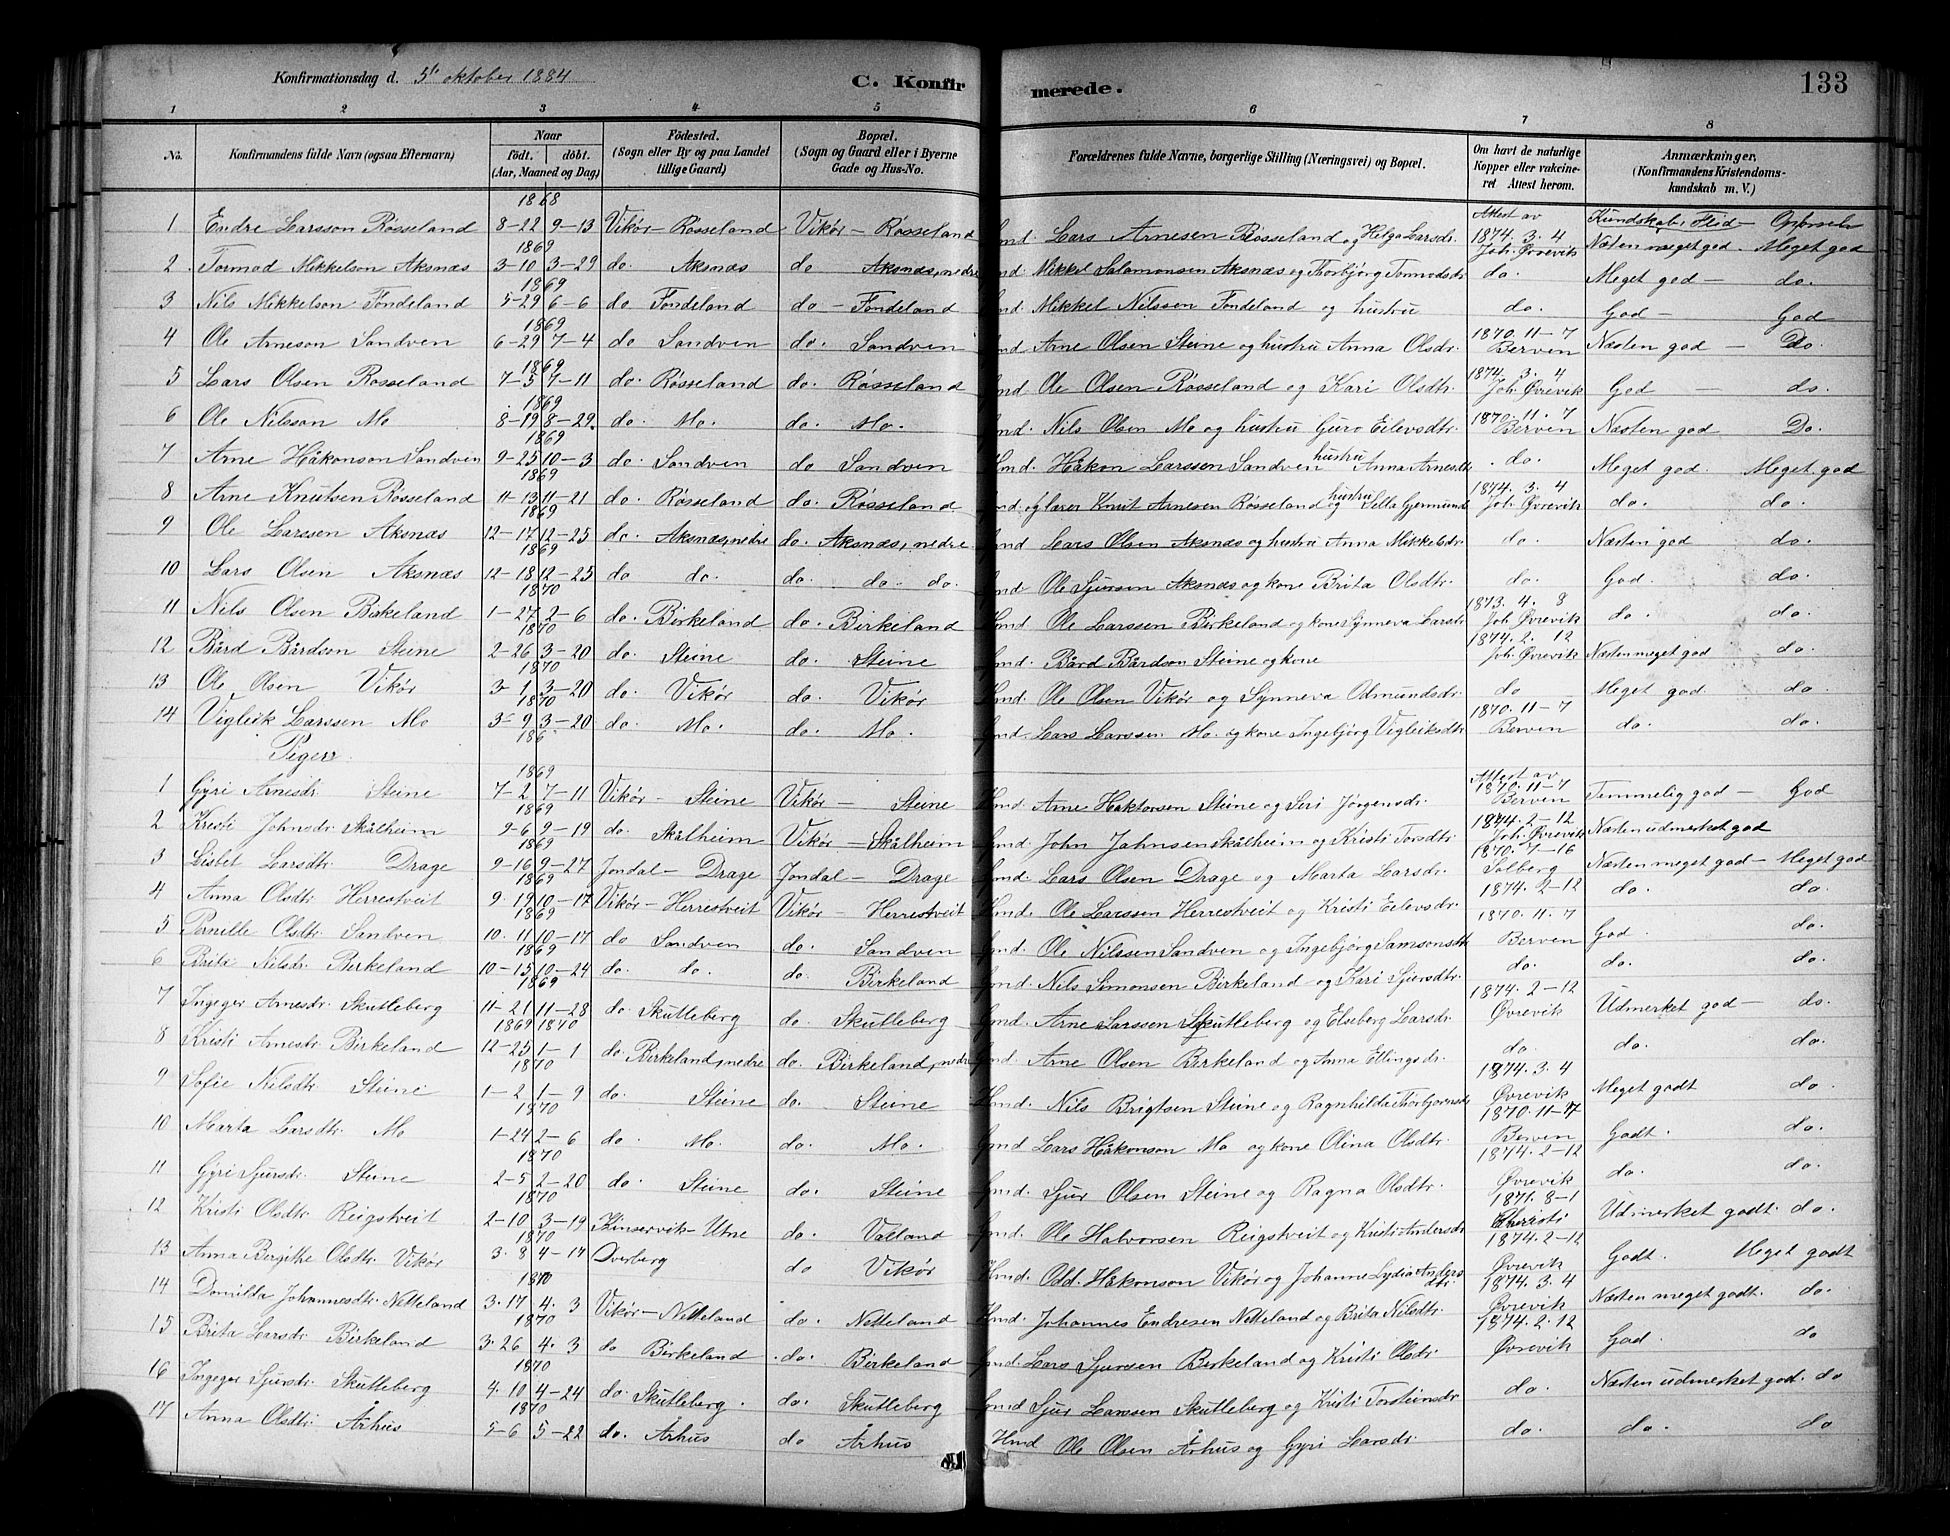 Konfirmationsdag d. 5te oktober 1884
C. Konfirmerede.
133
1 2 3 4 5 6 7 8
No. Konfirmandens fulde Navn (ogsaa Efternavn) Naar födt. döbt. (Aar, Maaned og Dag) Födested. (Sogn eller By og paa Landet tillige Gaard) Bopæl. (Sogn og Gaard eller i Byerne Gade og Hus-No. Forældrenes fulde Navne, borgerlige Stilling (Næringsvei) og Bopæl. Om havt de naturlige Kopper eller vakcineret Attest herom. Anmærkninger. (Konfirmandens Kristendomskundskab m. V.)
1868 Attest av Kundskab: Flid — Opførsel
1 Endre Larsson Røsseland 8-22 9-13 Vikør - Røsseland Vikør - Røsseland Gmd. Lars Arnesen Røsseland og Helga Larsdr. 1874. 3. 4 Joh. Øvrevik Næsten meget god - Meget god
1869
2 Tormod Mikkelson Aksnæs 3-10 3-29 do. Aksnæs do Aksnæs, nedre Gmd. Mikkel Salamonsen Aksnæs og Thorbjörg Tormodsdr do. Meget god - do.
1869
3 Nils Mikkelson Fondeland 5-29 6-6 do Fondeland do - Fondeland Gmd. Mikkel Nilssen Fondeland og hustru do. God - God
1869
4 Ole Arneson Sandven 6-29 7-4 do Sandven do. Sandven Gmd Arne Olsen Steine og hustru Anna Olsdr. 1870. 11-7 Berven Næsten god - Do.
1869
5 Lars Olsen Røsseland 7-5 7-11 do. Røsseland do. Røsseland Gmd Ole Olsen Røsseland og Kari Olsdtr. 1874. 3. 4 Joh. Øvrevik God - do.
1869
6 Ole Nilsson Mo 8-19 8-29. do. Mo. do. Mo. Gmd. Nils Olsen Mo og hustru Guro Eilevsdtr. 1870. 11. 7 Berven Næsten god Do.
1869
7 Arne Håkonson Sandven 9-25 10-3 do. Sandven do Sandven Gmd. Håkon Larssen Sandven hustru Anna Arnesdtr do. Meget god. Meget god
1869
8 Arne Knutsen Røsseland 11-13 11-21 do. Røsseland do. Røsseland Gmd og lærer Knut Arnesen Røsseland og hustru Sella Gjermunds 1874. 3. 4 Joh. Øvrevik do. do.
1869
9 Ole Larssen Aksnæs 12-17 12-25 do. Aksnæs, nedre do. Aksnæs, nedre Gmd Lars Olsen Aksnæs og hustru Anna Mikkelsdr. do. Næsten god do.
1869
10 Lars Olsen Aksnæs 12-18 12-25 do do. do. do. do. Gmd. Ole Sjursen Aksnæs og kone Brita Olsdtr. do. God. do.
1870
11 Nils Olsen Birkeland 1-27 2-6 do. Birkeland do. Birkeland Hmd. Ole Larssen Birkeland og kone Synneva Larsdtr 1873. 4. 8 Joh. Øvrevik do. do.
1870
12 Bård Bårdson Steine 2-26 3-20 do. Steine do. Steine Gmd. Bård Bårdson Steine og kone 1874. 2. 12 Joh. Øvrevik Næsten meget god do.
1870
13 Ole Olsen Vikør 3-1 3-20 do. Vikør do. Vikør Hmd. Ole Olsen Vikør og Synneva Odmundsdr. do Meget god. do.
1870
14 Vigleik Larssen Mo 3-9 3-20 do. Mo. do. Mo. Gmd. Lars Larssen Mo. og kone Ingebjörg Vigleiksdtr 1870. 11-7 Berven do. do.
186
Piger.
1869 Attest av
1 Gyri Arnesdr Steine 7-2 7-11 Vikør - Steine Vikør - Steine Hmd. Arne Haktorsen Steine og Siri Jörgensdr. 1870. 11-7 Berven Temmelig god - God
1869
2 Kristi Johnsdr. Skålheim 9-6 9-19 do. Skålheim Vikør - Skålheim Gmd. John Johnsen Skålheim og Kristi Torsdtr 1874-2-12 Joh. Øvrevik Næsten udmerket god
1869
3 Lisbet Larsdtr. Drage 9-16 9-27 Jondal - Drage Jondal - Drage Gmd. Lars Olsen Drage og Marta Larsdr. 1870. 7-16 Solberg Næsten meget god - Meget god
1869
4 Anna Olsdtr Herrestveit 9-19 10-17 Vikør - Herrestveit Vikør - Herrestveit Hmd. Ole Larssen Herrestveit og Kristi Eilevsdr. 1874. 2-12 do. do.
1869
5 Pernille Olsdtr. Sandven 10. 11 10-17 do Sandven do. Sandven Gmd. Ole Nilssen Sandven og Ingebjörg Samsonsdtr 1870. 11. 7 Berven God. do.
1869
6 Brita Nilsdr. Birkeland 10-15 10-24 do. do. do. Birkeland Gmd. Nils Simonsen Birkeland og Kari Sjursdtr. do. do. do.
1869
7 Ingeger Arnesdr. Skutleberg 11-21 11-28 do. Skutleberg do. Skutleberg Gmd. Arne Larssen Skutleberg og Elseberg Larsdr. 1874. 2-12 Øvrevik Udmerket god - do.
1869 1870
8 Kristi Arnesdr. Birkeland 12-25 1-1 do Birkeland, nedre do. Birkeland, nedre Gmd. Arne Olsen Birkeland og Anna Ellingsdr. do do. do.
1870
9 Sofie Nilsdtr. Steine 1-2 1-9 do. Steine do. Steine Hmd. Nils Brigtsen Steine og Ragnhilda Thorbjørnsdr 1874. 3. 4 Øvrevik Meget godt do
1870
10 Marta Larsdtr. Mo 1-24 2-6 do. Mo. do. Mo. Gmd Lars Håkonson Mo og kone Olina Olsdtr. 1870. 11-17 Berven Godt. do.
1870
11 Gyri Sjursdr. Steine 2-5 2-20 do. Steine do. Steine Gmd. Sjur Olsen Steine og Ragna Olsdtr. 1874. 2-12 Øvrevik do. do.
1870
12 Kristi Olsdtr. Reigstveit 2-10 3-19 Kinservik - Utne do. Valland Gmd. Ole Halvorsen Reigstveit og Kristi Andersdr 1871. 8-1 Christi Udmerket godt. do.
1870
13 Anna Bergithe Olsdtr. Vikør 3. 8 4-17 Overberg do Vikør Hmd. Odd. Håkonson Vikør og Johanne Lydia Andersdtr. 1874. 2-12 Øvrevik Godt. Meget godt
1870
14 Domilda Johannesdtr. Netteland 3. 17 4. 3 Vikør - Netteland do. Netteland Hmd. Johannes Endresen Netteland og Brita Nilsdtr. 1874. 3. 4 Øvrevik Næsten meget godt. do.
1870
15 Brita Larsdr. Birkeland 3. 26 4. 3 do Birkeland do. Birkeland Gmd. Lars Sjursen Birkeland og Kristi Olsdr 1874. 2. 12 Øvrevik God. do
1870
16 Ingeger Sjursdr. Skutleberg 4. 10 4-24 do. Skutleberg. do. Skutleberg Gmd Sjur Larssen Skutleberg og Kristi Torsteinsdr do. Næsten udmerket god. do
1870
17 Anna Olsdtr. Århus 5-6 5-22 do. Århus do Århus Hmd Ole Olsen Århus og Gyri Larsdr. do. do. do